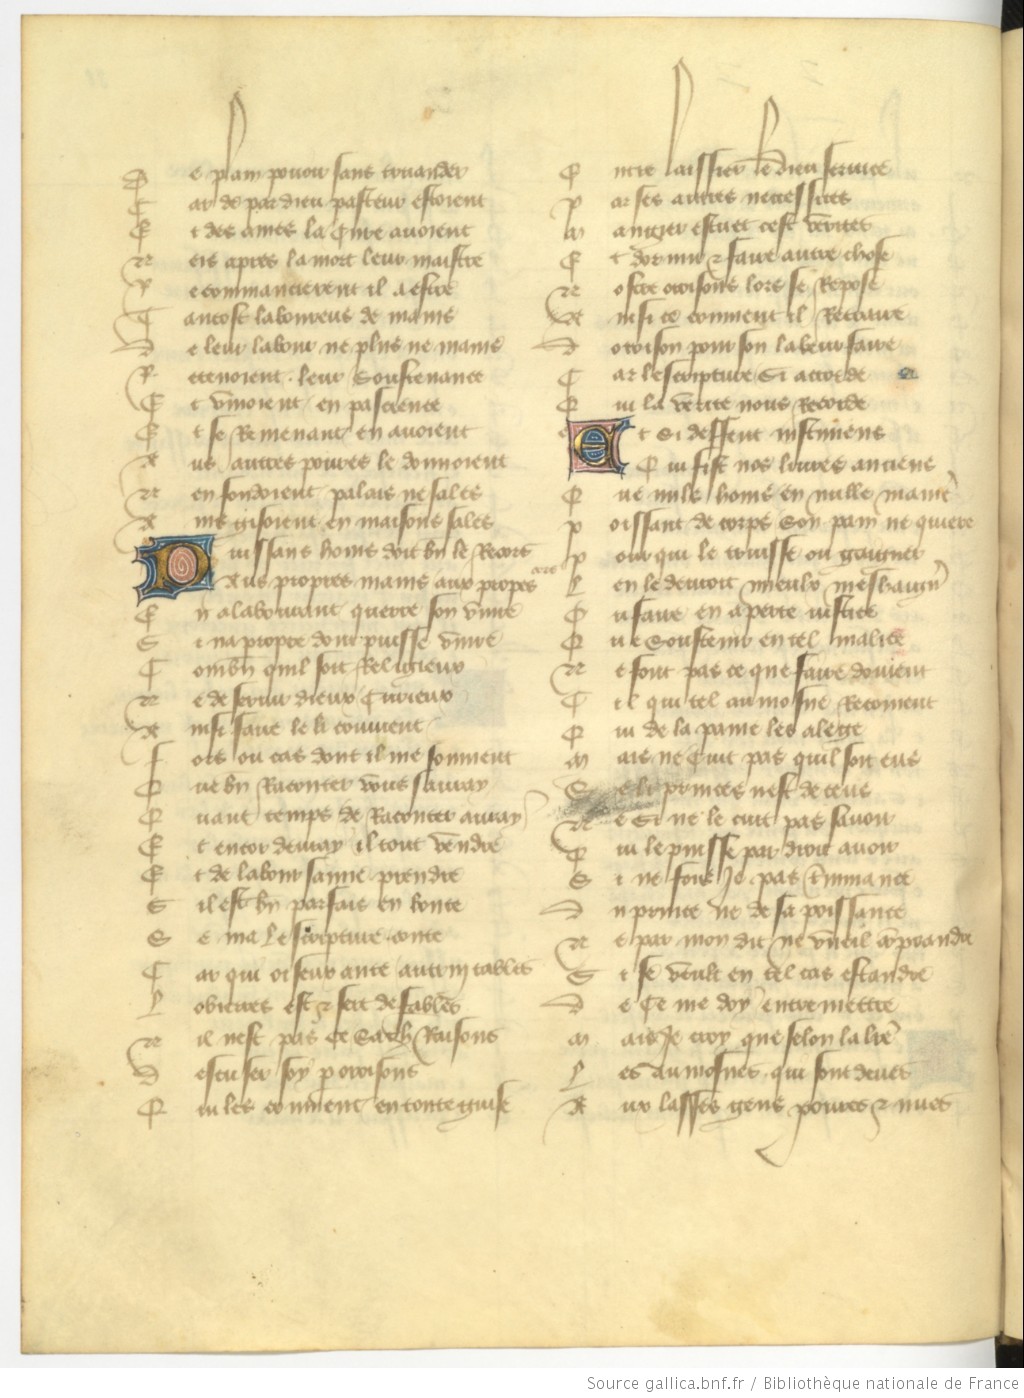 De plain pouoir sans truander
Car de par dieu pasteur estoient
Et des ames la Cure auoient
Neis apres la mort leur maistre
Recommancierent il a estre
Tantost laboureus de mains
De leur labour ne plus ne mains
Retenoient leur Soustenance
Et viuoient en pascience
Et se Remenant en auoient
Aus autres poures le donnoient
Nen fondoient palais ne sales
Ains gisoient en maisons sales
Puissans homs doit bn le Recort
Aus propres mains aux propes cors
En alabourant querre son viure
Si na propre dont puisse viure
Combn quil soit Religieux
Ne de seruir dieux Curieux
Ainsi faire le li conuient
Fors ou cas dont il me souuient
Que bn Raconter vous sauray
Quant temps de Raconter auray
Et encor deuray il tout vendre
Et de labour sa uie prendre
Sil est bn parfais en bonte
Se ma lescripture conte
Car qui oiseux ante autruy tables
Lobierres est & sert de fables
Nil nest pas Ce Sach Raisons
Descuser soy p oroisons
Quil es conuient en toute guise
Entre laissier le dieu seruice
Par ses autres necessites
Mangier estuet cest verites
Et dormir & faire autre chose
Nostre oroisons lors se Repose
Ainsi ce conuient il Retraire
Doroison pour son labeur faire
Car lescripture Si accorde
Qui la verite nous Recorde
Et Si deffent iustiniens
Qui fist nos liures anciens
Que nulz homs en nulle manie
Poissant de corps Son pain ne quiere
Pour qui le truisse ou gaigner
Len le deuroit mieulx meshaign
Ou faire en aperte iustice
Que Soustenir en tel malice
Ne font pas ce que faire doiuent
Cil qui tel aumosne Recoiuent
Qui de la paine les alege
Mais ne Cuit pas quil soit eus
Se li princes nest deceus
Ne Si ne le cuit pas sauoir
Quil le puisse par droit auoir
Si ne fois Je pas
Du prince ne de sa poissance
Ne par mon dit ne vueil comprandre
Si se veult en tel cas estandre
De Ce ne me doy entremettre
Mais Je croy que selon la lre
Les aumosnes qui sont deues
Aux lasses gens poures & nues